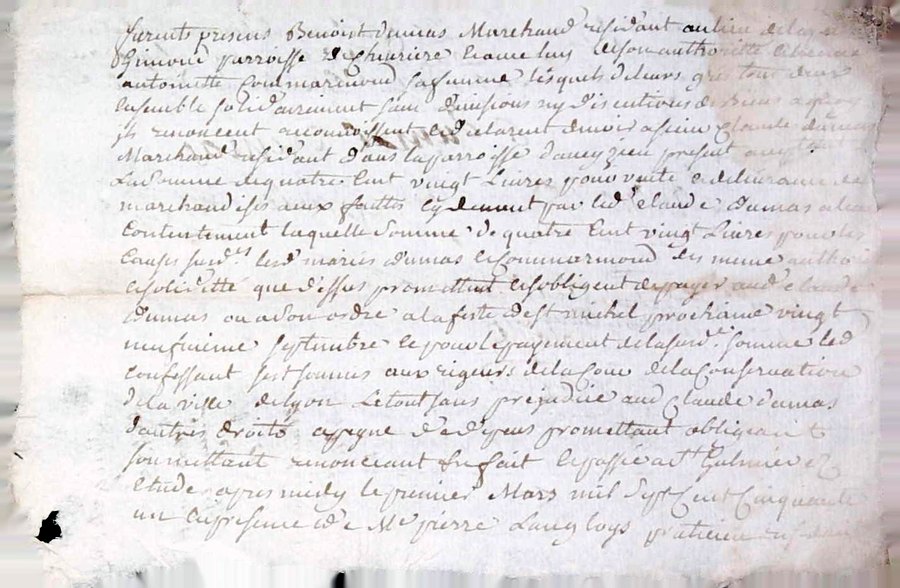 furents presens Benoist dumas Marchand residant au lieu de
Gimond parroisse de chevriere et avec luy de son authorité
antoinette Commarmond sa femme lesquels de leurs gré tous deux
ensemble solidairement sans divisions ny discutions de biens a quoy
ils renoncent reconnoissent et declarent devoir a sieur Claude dumas
Marchand residant dans la parroisse d'aveyzieu present
La somme de quatre cent vingt Livres pour vente et delivrance de
marchandises aux faittes cydevant par led claude dumas a leur
contentement laquelle somme de quatre cent vingt Livres pour les
causes susd.s lesd mariés dumas et Commarmond des meme authorité
et soliditté que dessus promettent et s'obligent de payer aud claude
dumas ou a son ordre a la feste de st michel prochaine vingt
neufvieme septembre et pour le payement de la susd.e somme led
confessant sest soumis aux rigeurs de la Cour de la Conservation
de la ville de Lyon Le tout sans prejudice aud Claude dumas
d'autres droits a peyne de depens promettant obligeant
soumettant renonceant fait et passé a st Galmier
etude apres midy le premier Mars mil sept cent cinquante
un en presence de Me pierre Langloys praticien